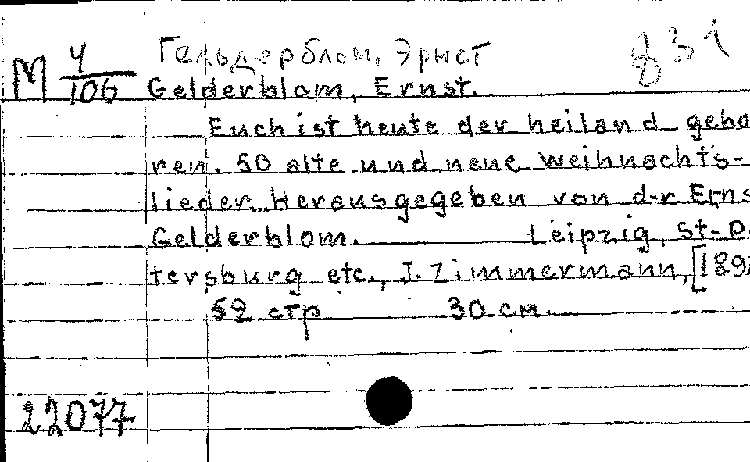 Гельдерблом, Эрнст
831
М 4/106
Gelderblom, Ernst.
Euch ist heute der heiland gebo
ren. 50 alte und neue weihnachts-
lieder. Herausgegeben von d-r Erns
Gelderblom. Leipzig, St-Pe
tersburg etc., J. Zimmermann, [189
52 стр 30 см.
22077